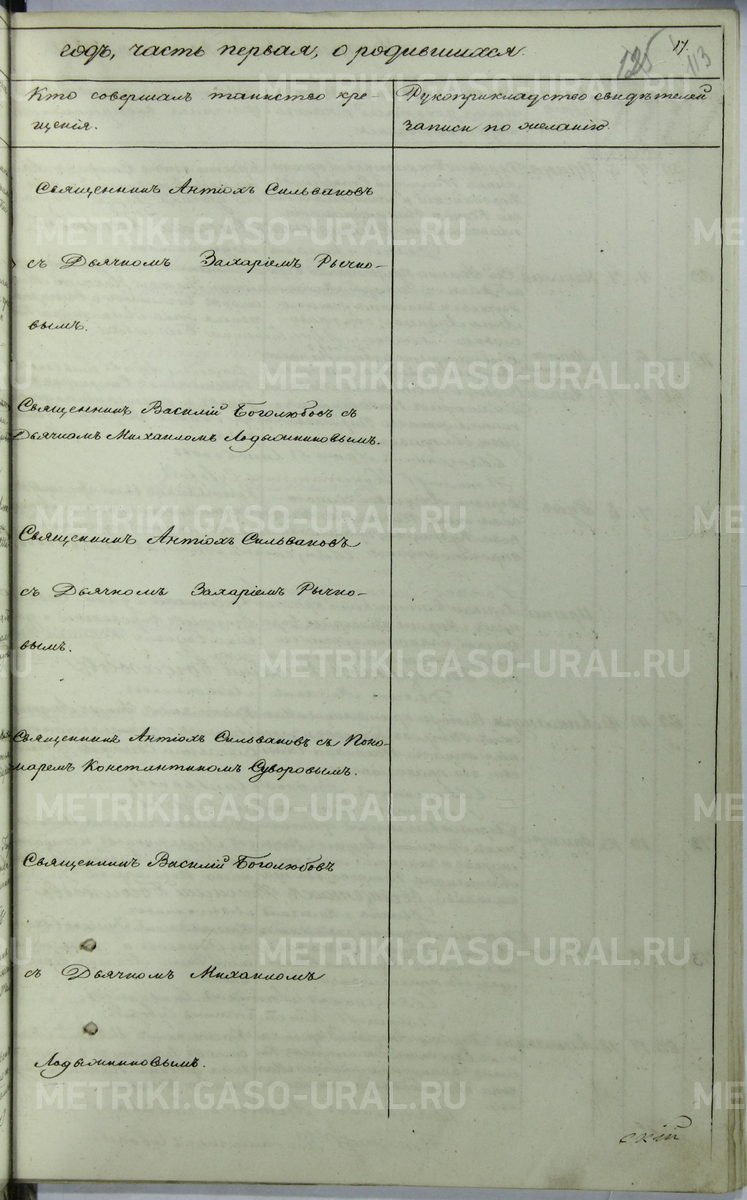 годъ, часть первая, о родившихся.
125
17.
113
Кто совершалъ таинство кре-
щенія.
Рукоприкладство свидѣтелей
записи по желанію.
Священникъ Антіохъ Сильвановъ
съ Дьячкомъ Захаріемъ Рычко-
вымъ.
Священникъ Василій Боголюбовъ съ
Дьячкомъ Михаиломъ Ладыжниковымъ.
Священникъ Антіохъ Сильвановъ
съ Дьячкомъ Захаріемъ Рычко-
вымъ.
Священникъ Антіохъ Сильвановъ съ Поно-
маремъ Константиномъ Суворовымъ.
Священникъ Василій Боголюбовъ
съ Дьячкомъ Михаиломъ
Ладыжниковымъ.
скій
METRIKI.GASO-URAL.RU